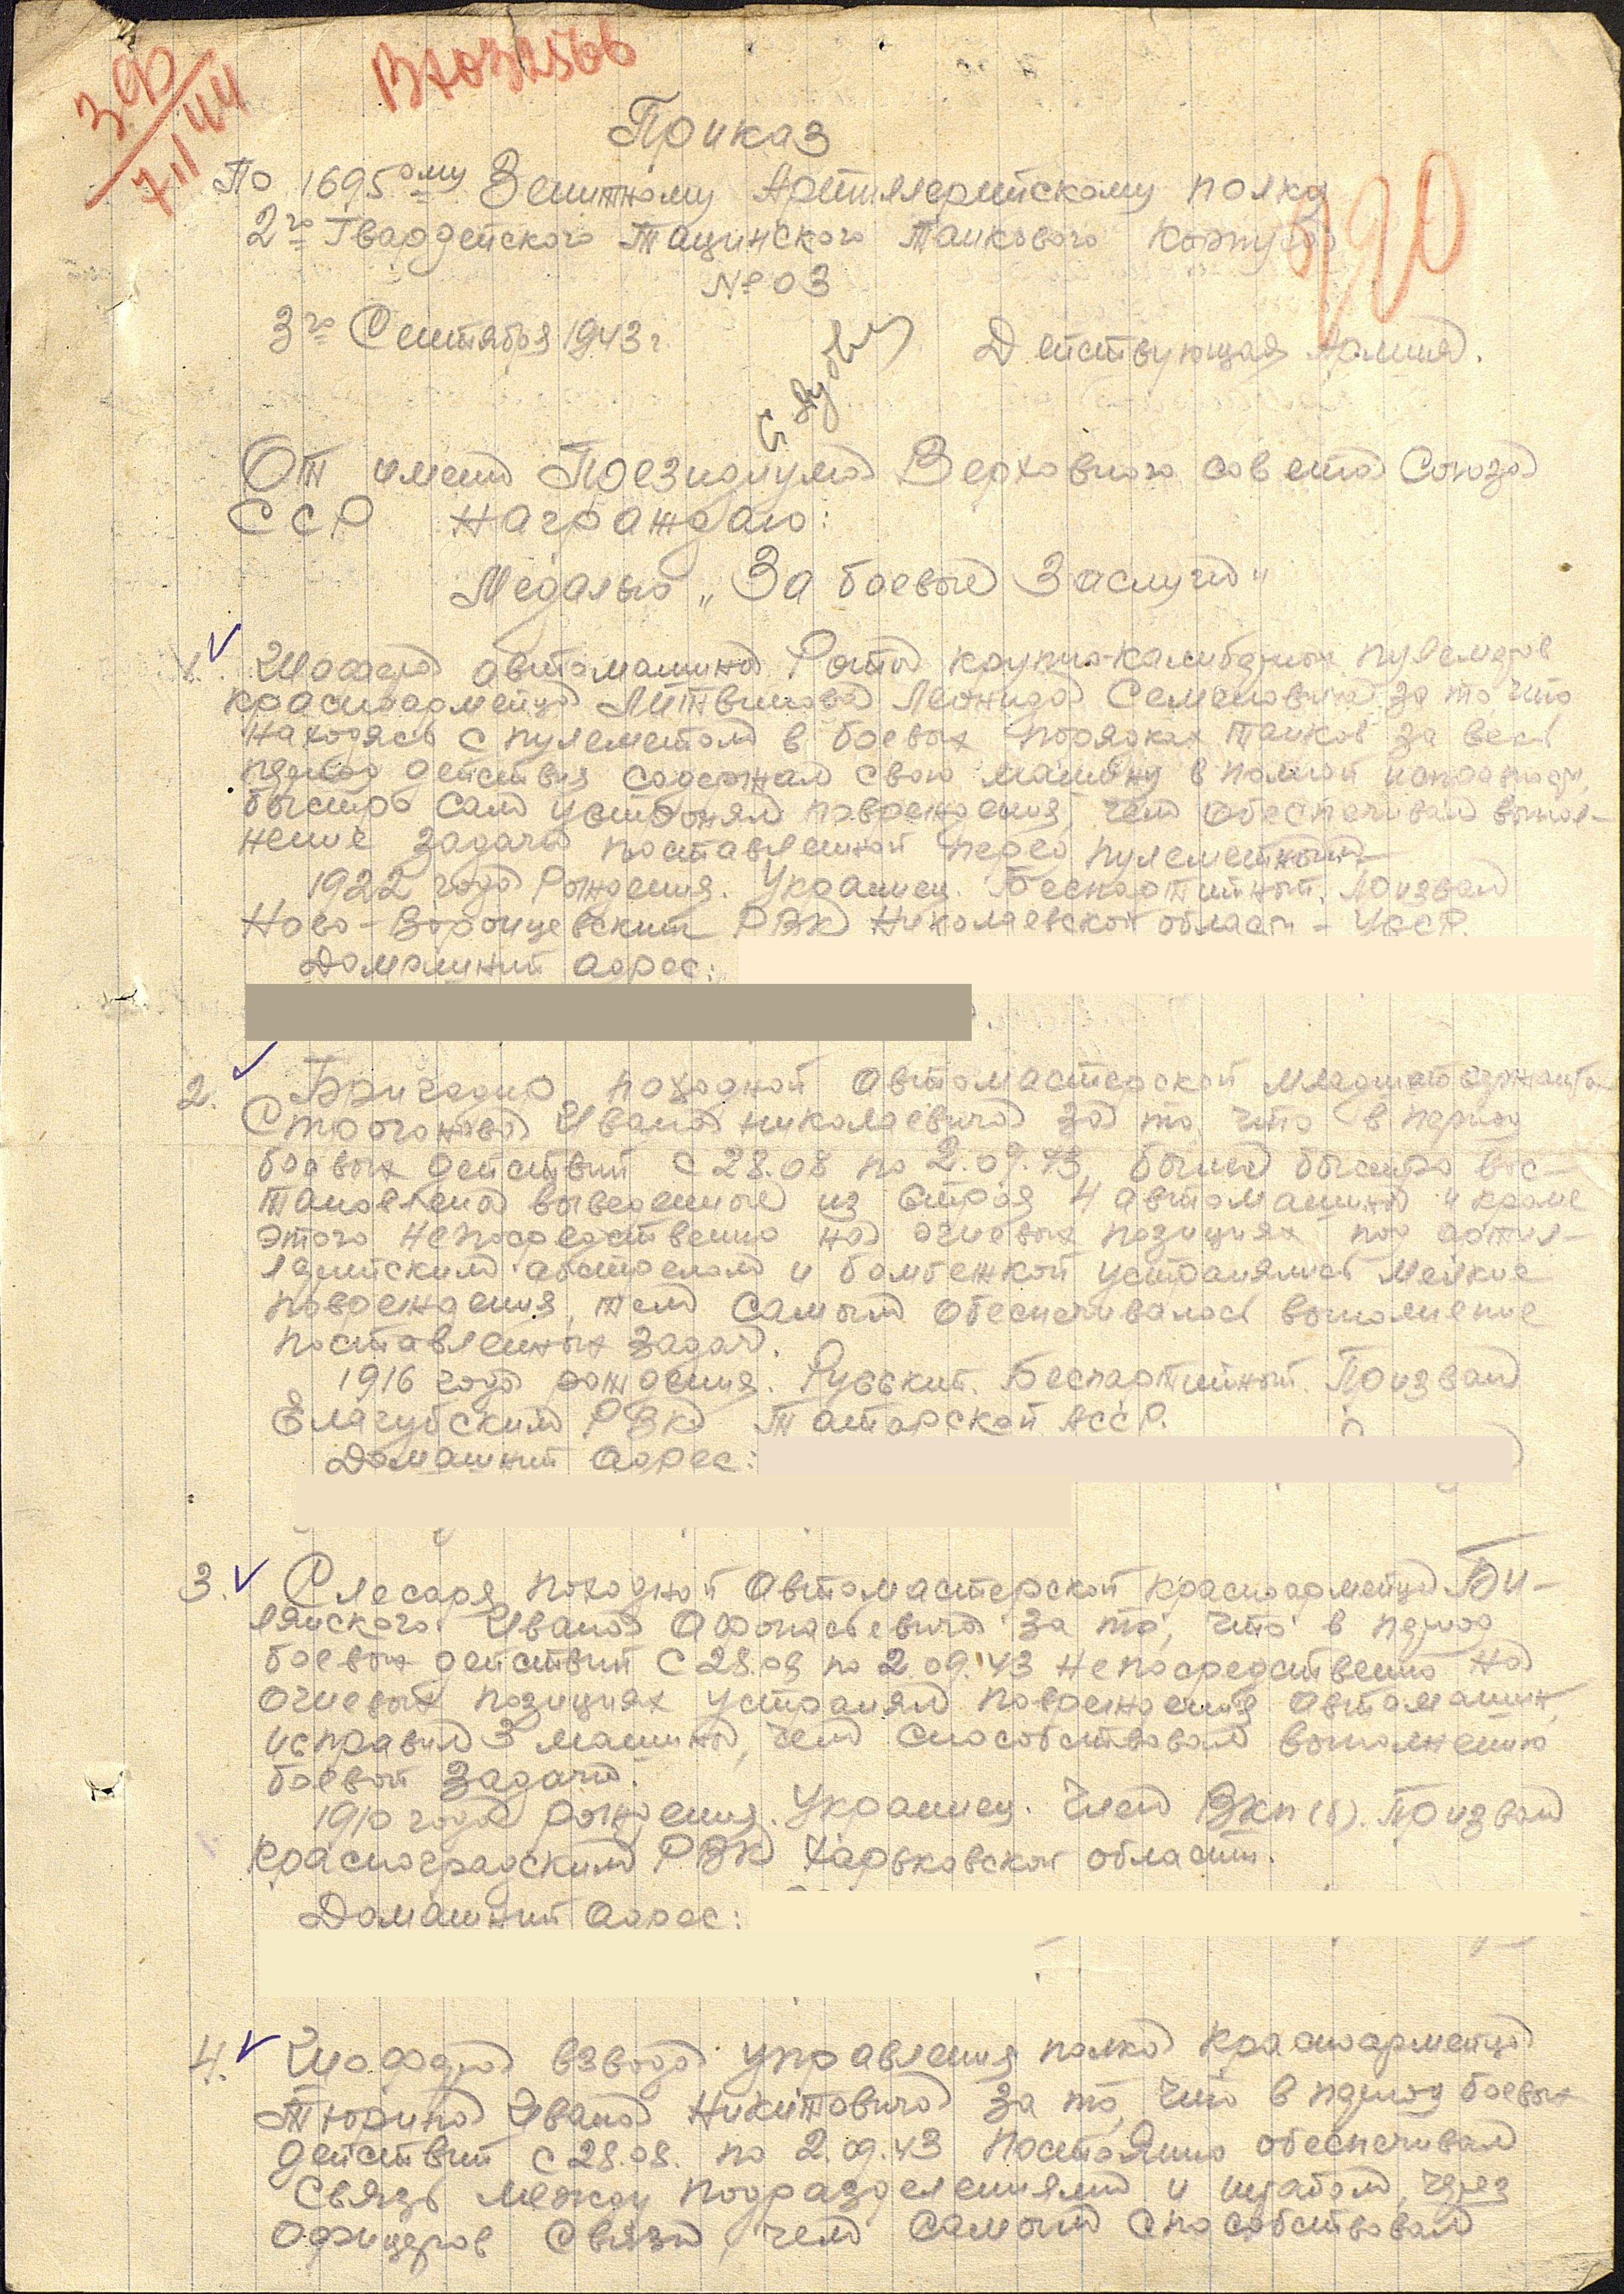 390
7.II 44
В7032566
Приказ
По 1695ому Зенитному Артиллерийскому полку
190
2го Гвардейского Тацинского Танкового Корпуса
№ 03
3го Сентября 1943 г.
Действующая Армия.
От имени Президиума Верховного совета Союза
ССР награждаю:
Медалью „За боевые Заслуги"
1. Шофера автомашины Роты крупно-калиберных пулеметов
красноармейца Литвинова Леонида Семеновича за то, что
находясь с пулеметом в боевых порядках танков за весь
период действия содержал свою машину в полной исправности,
быстро сам устранял повреждения, чем обеспечивал выпол-
нение задачи поставленной перед пулеметным
1922 года Рождения. Украинец. Беспартийный. Призван
Ново-Воронцовским РВК Николаевской области - УССР.
Домашний адрес:
2. Бригадир походной Автомастерской младшего сержанта
Строганова Ивана Николаевича за то, что в период
боевых действий с 28.08 по 2.09.43, были быстро вос-
тановлены выведенные из строя 4 автомашины и кроме
этого непосредственно на огневых позициях под артил-
лерийским обстрелом и бомбежкой устранялись мелкие
повреждения, тем самым обеспечивалось выполнение
поставленных задач.
1916 года рождения. Русский. Беспартийный. Призван
Елагубским РВК Татарской АССР.
Домашний Адрес:
3. Слесаря походной Автомастерской красноармейца Би-
лянского Ивана Афонасьевича за то, что в период
боевых действий с 28.08 по 2.09.43 непосредственно на
огневых позициях устранял повреждения Автомашин,
исправил 3 машины, чем способствовал выполнению
боевой задачи.
1910 года рождения. Украинец. Член ВКП(б). Призван
Красноградским РВК Харьковской области.
Домашний адрес:
4. Шофера взвода управления полка красноармейца
Тюрина Ивана Никитовича за то, что в период боевых
действий с 28.08. по 2.09.43 постоянно обеспечивал
связь между подразделениями и штабом, через
офицеров связи, чем самым способствовал